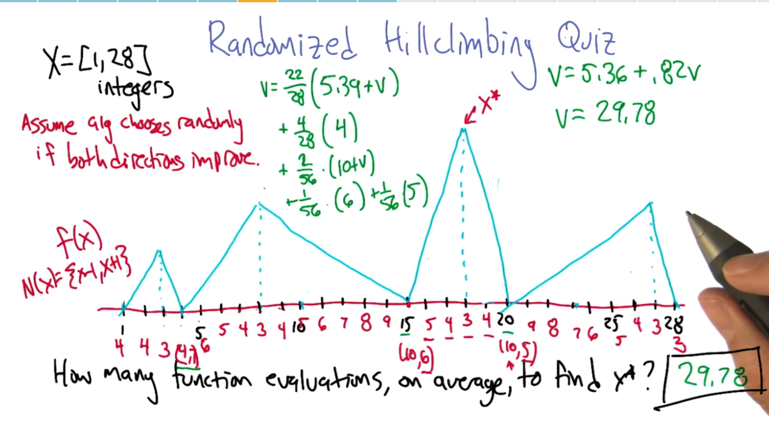 Randomized Hillclimbing Quiz
X = [1,28]
integers
Assume alg chooses randomly
if both directions improve.
V = 22/28 (5.39 + V)
+ 4/28 (4)
+ 2/56 · (10+V)
+ 1/56 · (6) + 1/56 (5)
V = 5.36 + .82V
V = 29.78
x*
f(x)
N(x) = {x-1, x+1}
1 5 10 15 20 25 28
4 4 3 (4,7) 6 5 4 3 4 5 6 7 8 9 (10,6) 5 4 3 4 (10,5) 9 8 7 6 5 4 3 3
How many function evaluations, on average, to find x*? 29.78